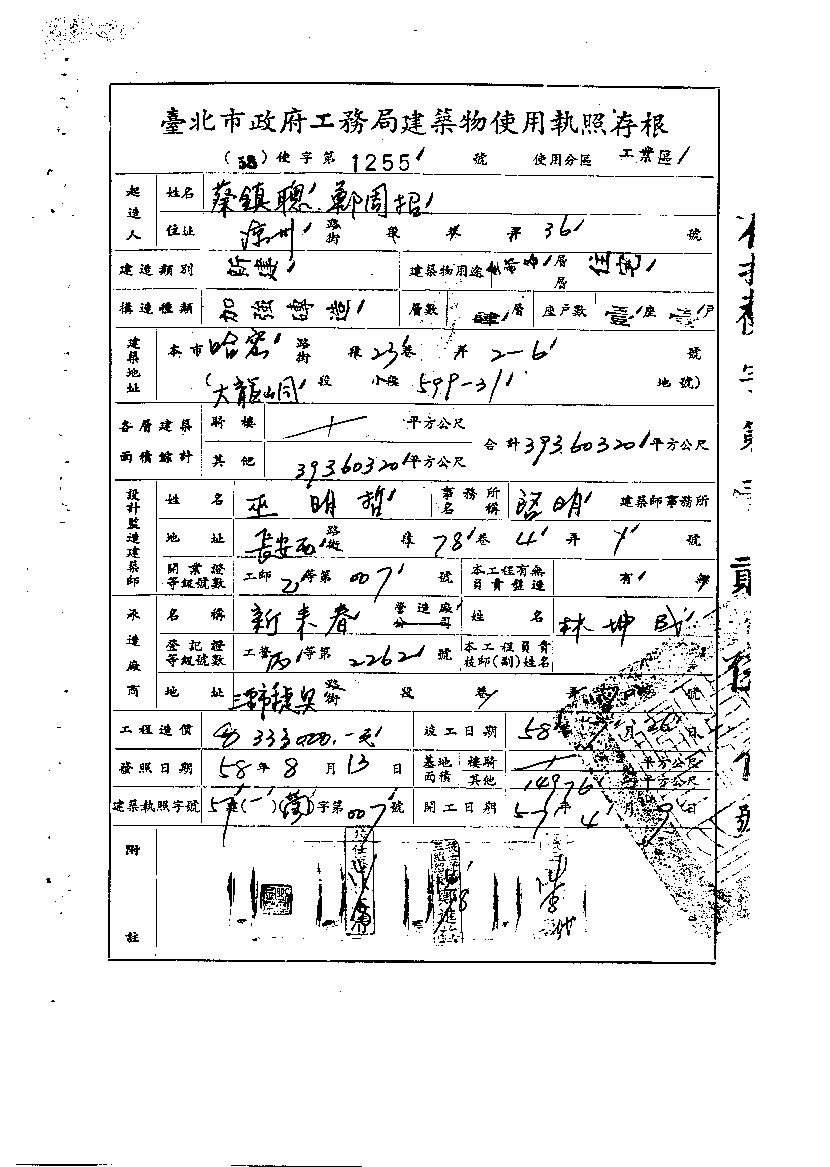 臺北市政府工務局建築物使用執照存根
(58) 使字第 1255 號 使用分區 工業區
起造人 姓名 蔡鎮聰 鄭周招
住址 涼州 路街 段 巷 弄 36 號
建造類別 新建 建築物用途 層 層 住宅
構造種類 加強磚造 層數 肆 層 座戶數 壹 座 壹 戶
建築地址 本市 哈密 路街 段 23 巷 弄 2-6 號
(大龍峒 段 小段 599-31 地號)
各層建築面積綜計 騎樓 平方公尺 合計 393.60320 平方公尺
其他 393.60320 平方公尺
設計監造建築師 姓名 巫明哲 事務所名稱 啓明 建築師事務所
地址 長安西 路街 段 78 巷 4 弄 號
開業證等級號數 工師 乙 等第 007 號 本工程有無負責監造 有 無
承造廠商 名稱 新來春 營造廠 公司 姓名 林坤
登記證等級號數 工營 丙 等第 2262 號 本工程負責技師(副)姓名
地址 路街 段 巷 弄 號
工程造價 333,000.-元 竣工日期 58 年 7 月 26 日
發照日期 58 年 8 月 13 日 基地面積 樓騎 平方公尺
其他 149.76 平方公尺
建築執照字號 57 (一) (營) 字第 007 號 開工日期 57 年 4 月 9 日
附註